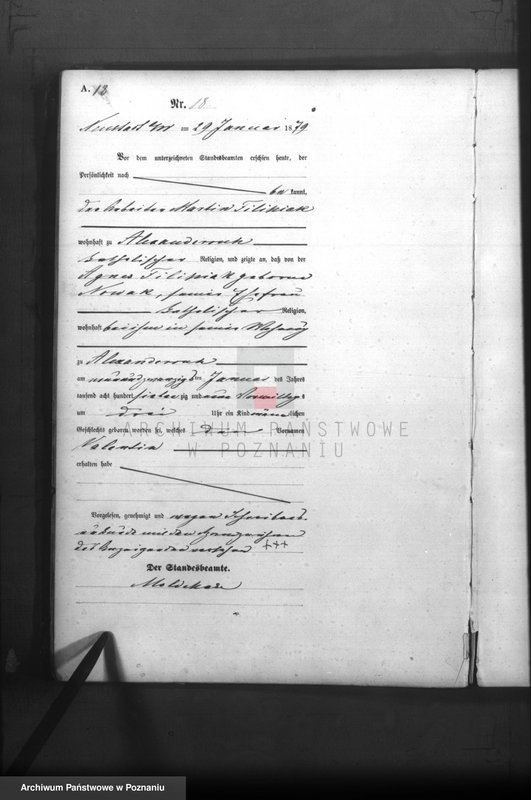 A. 18
Nr. 18
Neustadt a/W am 29 Januar 1879
Vor dem unterzeichneten Standesbeamten erschien heute, der
Persönlichkeit nach
be kannt,
der Arbeiter Martin Filipiak
wohnhaft zu Alexanderruh
katholischer Religion, und zeigte an, daß von der
Agnes Filipiak geborene
Nowak, seiner Ehefrau
katholischer Religion,
wohnhaft bei ihm in seiner Wohnung
zu Alexanderruh
am neunundzwanzigsten Januar des Jahres
tausend acht hundert siebenzig und neun Vormittags
um drei Uhr ein Kind männlichen
Geschlechts geboren worden sei, welches den Vornamen
Valentin
erhalten habe
ARCHIWUM PAŃSTWOWE
W POZNANIU
Vorgelesen, genehmigt und wegen Schreibens-
unkunde mit den Handzeichen
des Anzeigenden versehen +++
Der Standesbeamte.
Archiwum Państwowe w Poznaniu